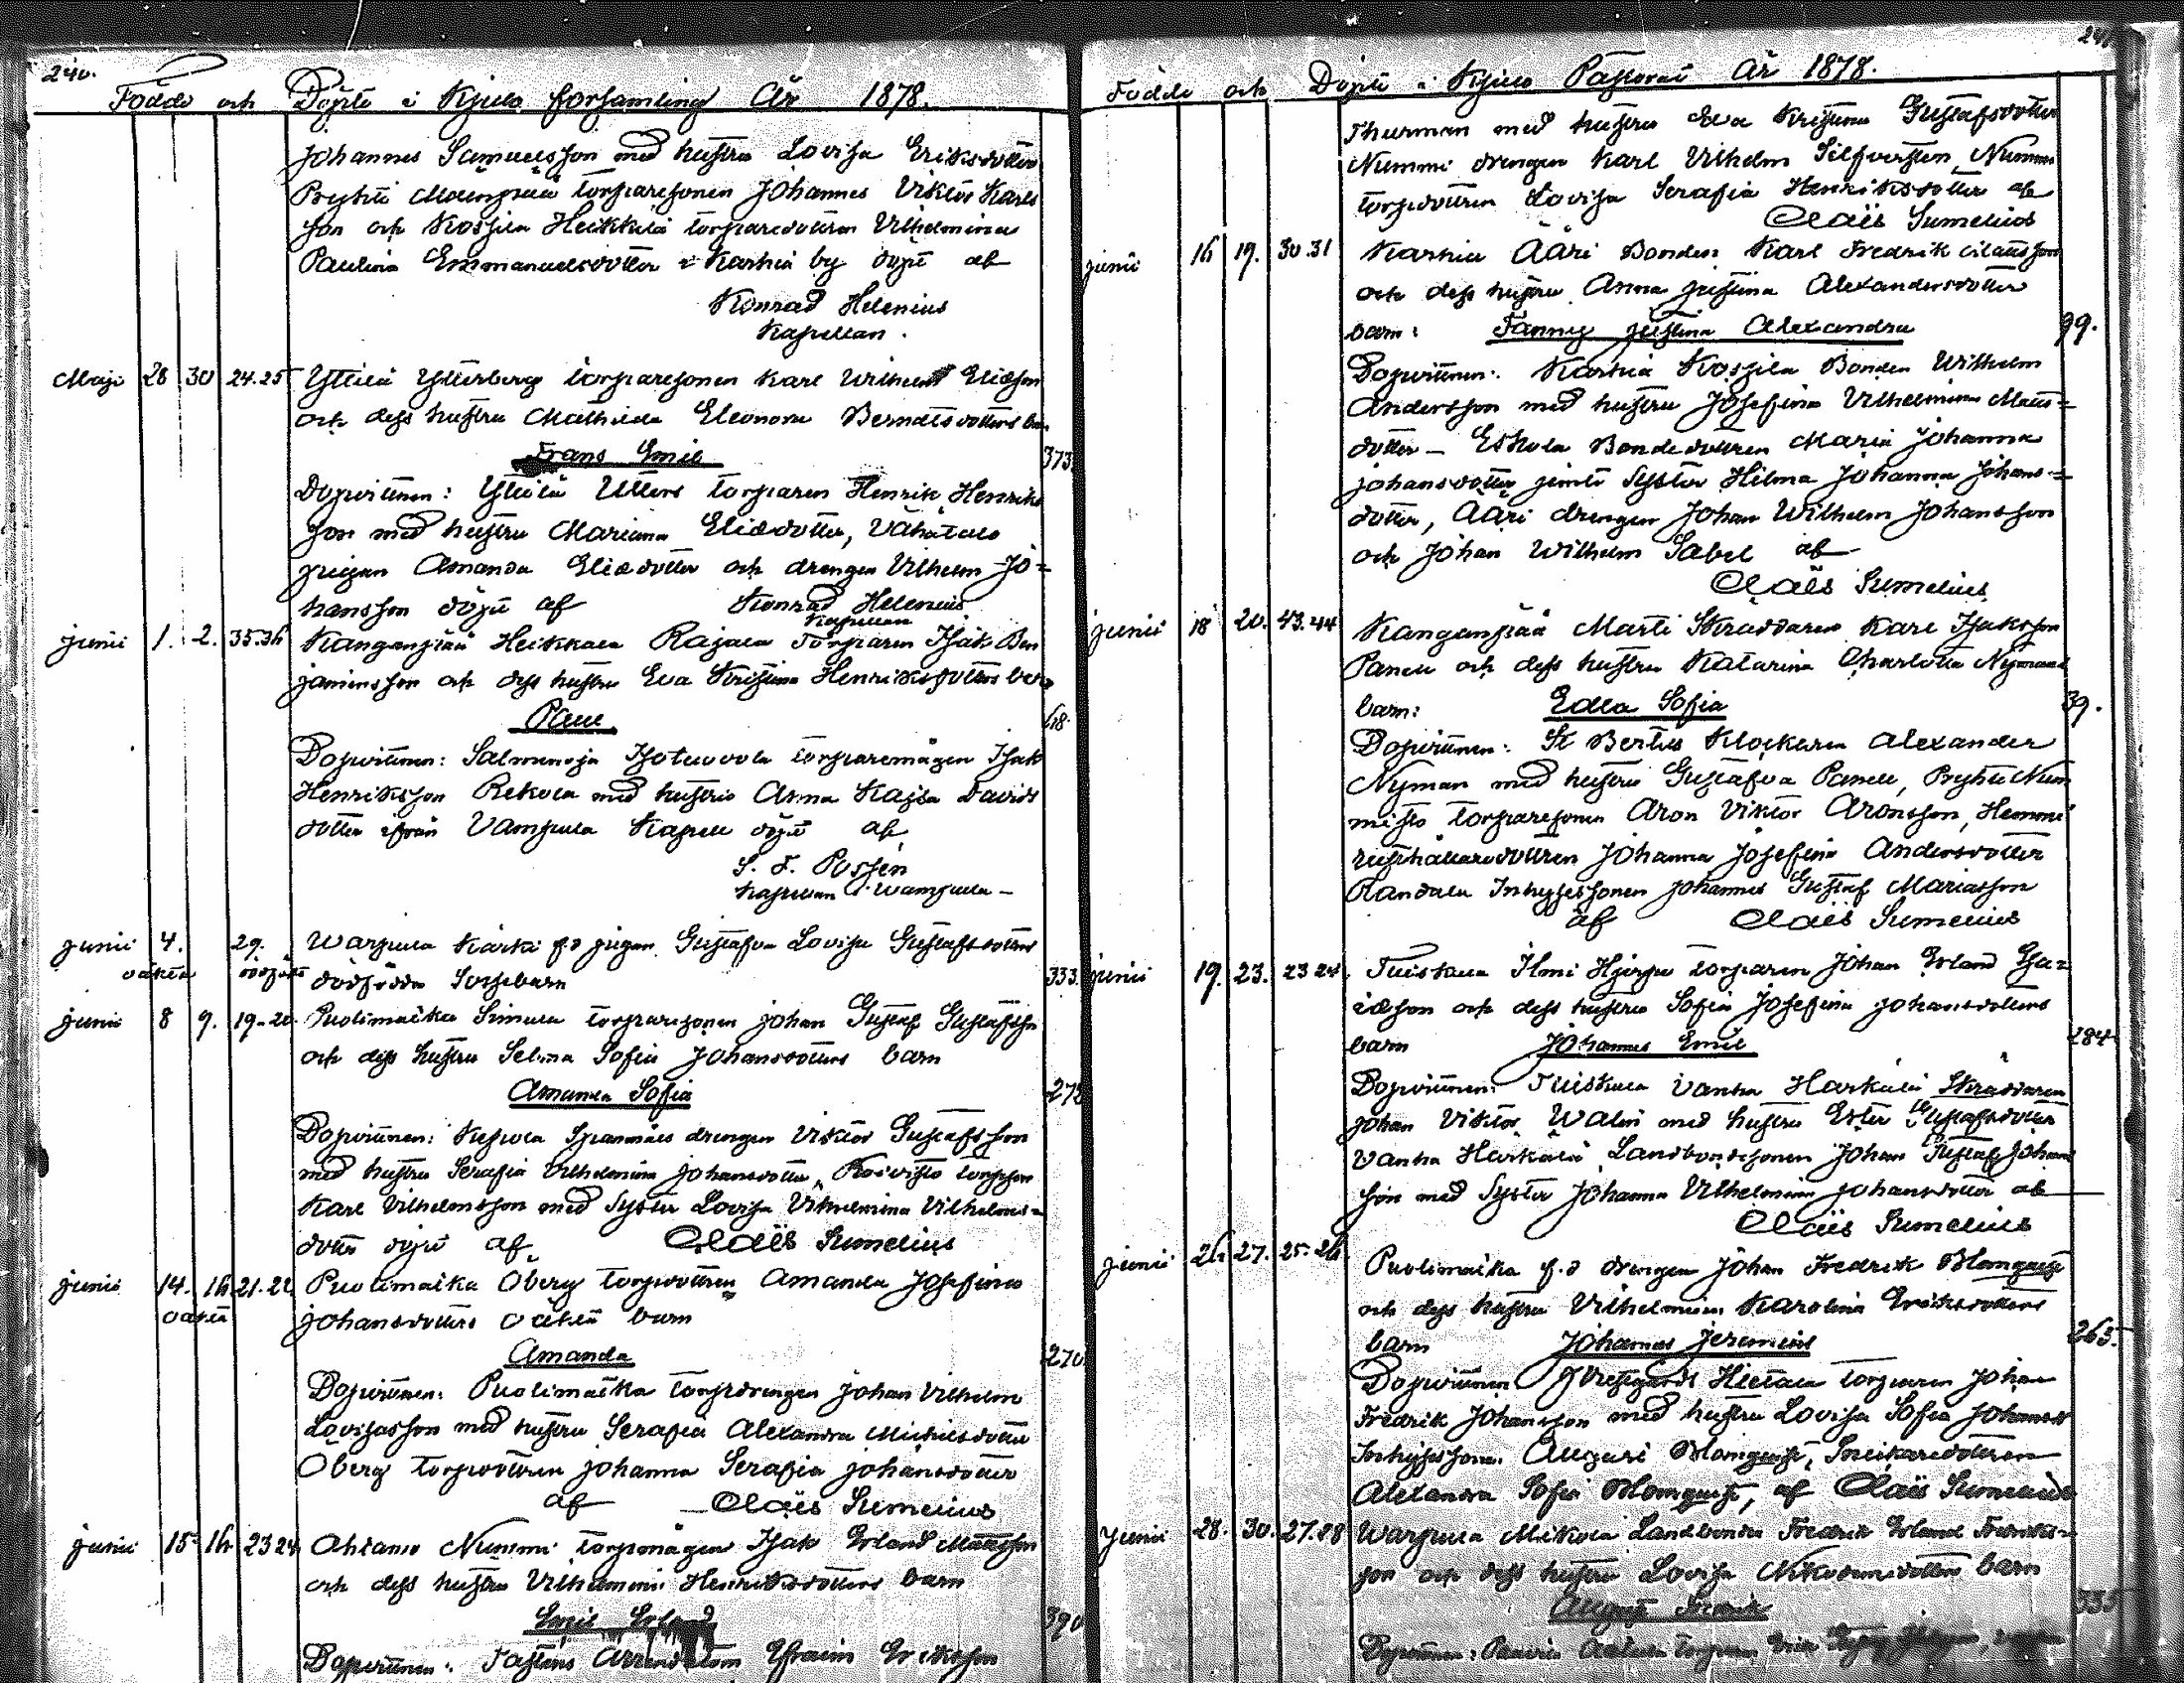 240.
Födde och Döpte i Kjulo församling År 1878.
Johannes Samuelsson med hustru Lovisa Eriksdotter
torparesonen Johannes Viktor Karls
son och Heikkilä torparedottren Vilhelmina
Paulina Emmanuelsdotter i Karhia by döpt af
Konrad Helenius
Kapellan.
Maji 28 30 24.25 Yttilä Ytterberg torparesonen Karl Vilhelm Eliæson
och dess hustru Mathilda Eleonora Berndtsdotters
Frans Emil 373
Dopvittnen: Yttilä torparen Henrik Henriks
son med hustru Mariana Eliædotter, Vähätalo
pigan Amanda Eliædotter och drengen Vilhelm Jo=
hansson döpt af Konrad Helenius
Kapellan
junii 1. 2. 35.36 Kanganpää Heikkala Rajala Torparen Isak Ben
jaminsson och dess hustru Eva Kristina Henriksdotters barn
618.
Dopvittnen: Salmenoja torparemågen Isak
Henriksson Rekola med hustru Anna Kajsa Davids
dotter ifrån Vampula Kapell döpt af
Kapellan i Wampula –
junii 4. 29. Warpula Kärki f.d pigan Gustafva Lovisa Gustafsdotters
oäkta dödfödt dödfödda barn 333.
junii 8 9. 19-20. Puolimatka Simula torparesonen Johan Gustaf Gustafsson
och dess hustru Selma Sofia Johansdotters barn
Amanda Sofia 272
Dopvittnen: drengen Viktor Gustafsson
med hustru Serafia Vilhelmina Johansdotter, Koivisto
Karl Vilhelmsson med Syster Lovisa Vilhelmina Vilhelms=
dotter döpt af Claës Sumelius
junii 14. 16 21.22 Puolimatka Öberg torpdottren Amanda Josefina
oäkta Johansdotters oäkta barn
Amanda 270
Dopvittnen: Puolimatka torpdrengen Johan Vilhelm
Lovisasson med hustru Serafia Alexandra Mickelsdotter
Öberg torpdottren Johanna Serafia Johansdotter
af Claës Sumelius
junii 15 16 23 24 Ahtamo Nummi torpmågen Isak Erland Mattsson
och dess hustru Vilhelmina Henriksdotters barn
Emil Erland 390
Dopvittnen: Efraim Eriksson
Födde och Döpte i Kjulo Pastorat År 1878.
Thurman med hustru Eva Kristina Gustafsdotter
Nummi drengen Karl Vilhelm Silfversten, Nummi
torpdottren Lovisa Serafia Henriksdotter af
Claës Sumelius
junii 16 19. 30 31 Karhia Ääri Bonden Karl Fredrik
och dess hustru Anna Justina Alexandersdotter
barn: Fanny Justina Alexandra 99.
Dopvittnen: Karhia Bonden Wilhelm
Andersson med hustru Josefina Vilhelmina Matts=
dotter – Eskola Bondedottren Maria Johanna
Johansdotter jemte Syster Hilma Johanna Johans=
dotter, Ääri drengen Johan Wilhelm Johansson
och Johan Wilhelm Sabel af
Claës Sumelius
junii 18 20. 43.44 Kanganpää Martti Skräddaren Karl Isaksson
och dess hustru Katarina Charlotta Nymans
barn: Edla Sofia 39.
Dopvittnen: St Bertils Klockaren Alexander
Nyman med hustru Gustafva
torparesonen Aron Viktor Aronsson, Hemmi
rusthållaredottren Johanna Josefina Andersdotter
Randala Inhysessonen Johannes Gustaf Mariasson
af Claës Sumelius
junii 19. 23. 23 24. Tuiskula Ilmi torparen Johan Erland Esa=
iæson och dess hustru Sofia Josefina Johansdotters
barn Johannes Emil 284
Dopvittnen: Tuiskula Vanha Harkälä Skräddaren
Johan Viktor Walin med hustru Ester Gustafsdotter
Vanha Harkälä Landbondesonen Johan Gustaf Johans
son med Syster Johanna Vilhelmina Johansdotter af
Claës Sumelius
junii 26. 27. 25-26. Puolimatka f.d drengen Johan Fredrik Blomquist
och dess hustru Vilhelmina Karolina Eriksdotters
barn Johannes Jeremias 265.
Dopvittnen Hietala torparen Johan
Fredrik Johansson med hustru Lovisa Sofia Johansd
Inhyssson August Blomquist, Snickaredottren
Alexandra Sofia Blomquist, af Claës Sumelius
junii 28. 30. 27.28 Warpula Mikola Landbonden Fredrik Erland Fredriks=
son och dess hustru Lovisa Nikodemidotters barn
August Fredrik 335
Dopvittnen: